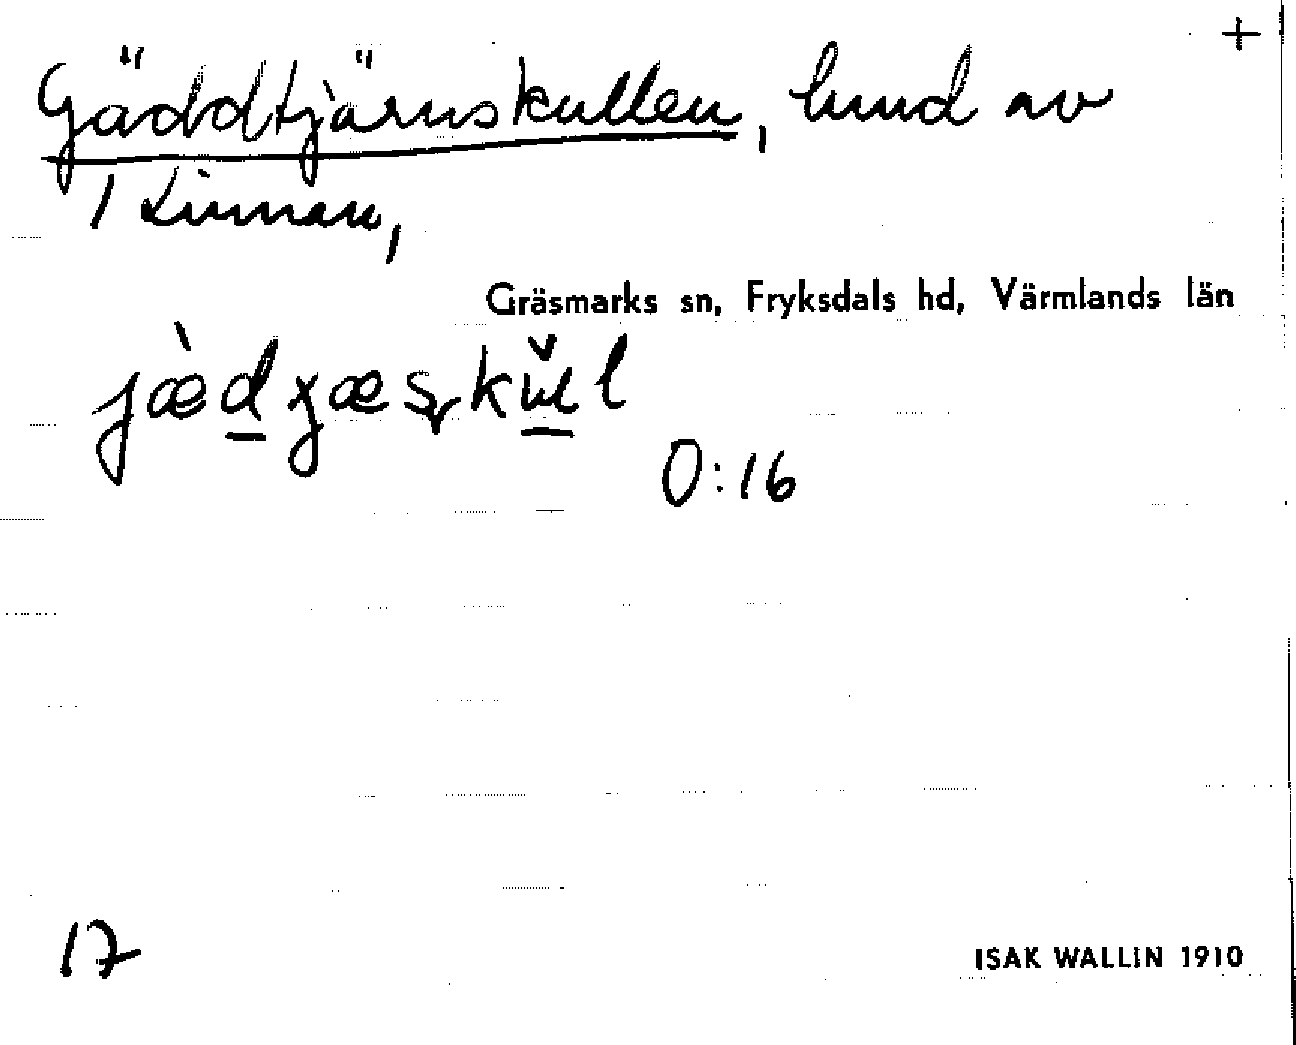 +
Gäddtjärnskullen, hmd av
1 Linnan,
Gräsmarks sn, Fryksdals hd, Värmlands län
0:16
17
ISAK WALLIN 1910